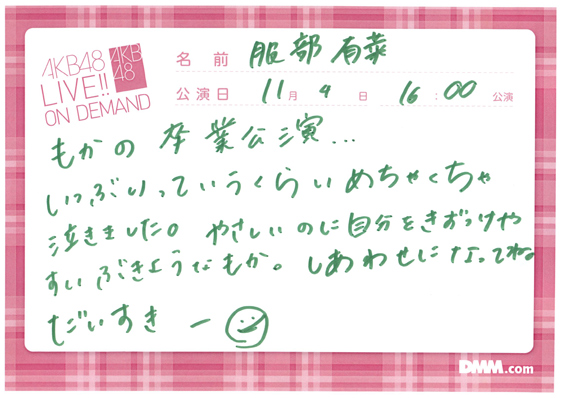 AKB48
LIVE!!
ON DEMAND
AKB
48
名前 服部有菜
公演日 11月4日 16:00公演
もかの 卒業公演...
いつぶりっていうくらいめちゃくちゃ
泣きました。 やさしいのに自分をきずつけや
すいぶきようなもか。 しあわせになってね。
だいすきー
DMM.com